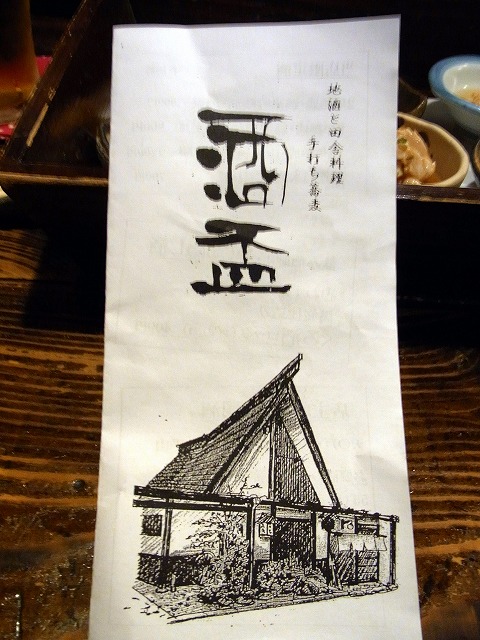 地酒と田舎料理
手打ち蕎麦
酒盃